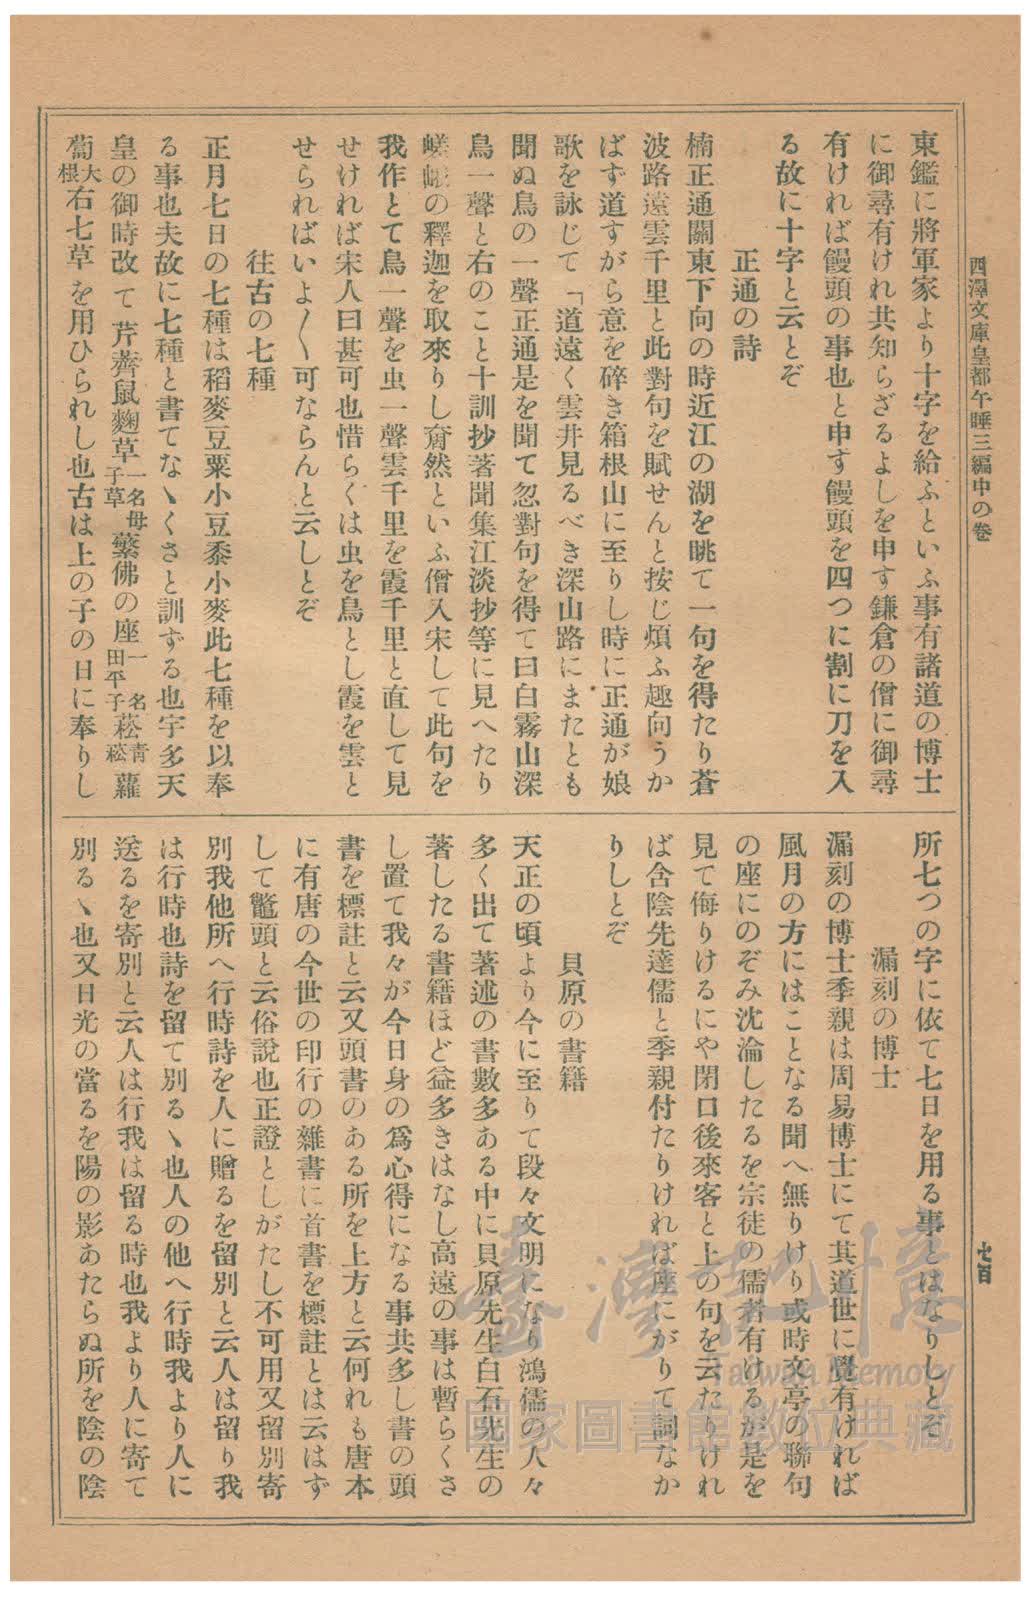 西澤文庫皇都午睡三編中の卷
東鑑に將軍家より十字を給ふといふ事有諸道の博士
に御尋有けれ共知らざるよしを申す鎌倉の僧に御尋
有ければ饅頭の事也と申す饅頭を四つに割に刀を入
る故に十字と云とぞ
正通の詩
楠正通關東下向の時近江の湖を眺て一句を得たり蒼
波路遠雲千里と此對句を賦せんと按じ煩ふ趣向うか
ばず道すがら意を碎き箱根山に至りし時に正通が娘
歌を詠じて「道遠く雲井見るべき深山路にまたとも
聞ぬ鳥の一聲正通是を聞て忽對句を得て曰白霧山深
鳥一聲と右のこと十訓抄著聞集江淡抄等に見へたり
嵯峨の釋迦を取來りし奝然といふ僧入宋して此句を
我作とて鳥一聲を虫一聲雲千里を霞千里と直して見
せければ宋人曰甚可也惜らくは虫を鳥とし霞を雲と
せらればいよ〳〵可ならんと云しとぞ
往古の七種
正月七日の七種は稻麥豆粟小豆黍小麥此七種を以奉
る事也夫故に七種と書てなゝくさと訓ずる也宇多天
皇の御時改て芹薺鼠麴草一名母子草蘩佛の座一名田平子菘青菘蘿
蔔大根右七草を用ひられし也古は上の子の日に奉りし
所七つの字に依て七日を用る事とはなりしとぞ
漏刻の博士
漏刻の博士季親は周易博士にて其道世に覺有ければ
風月の方にはことなる聞へ無りけり或時文亭の聯句
の座にのぞみ沈淪したるを宗徒の儒者有けるが是を
見て侮りけるにや閉口後來客と上の句を云たりけれ
ば含陰先達儒と季親付たりければ座にがりて詞なか
りしとぞ
貝原の書籍
天正の頃より今に至りて段々文明になり鴻儒の人々
多く出て著述の書數多ある中に貝原先生白石先生の
著したる書籍ほど益多きはなし高遠の事は暫らくさ
し置て我々が今日身の爲心得になる事共多し書の頭
書を標註と云又頭書のある所を上方と云何れも唐本
に有唐の今世の印行の雜書に首書を標註とは云はず
して鼇頭と云俗說也正證としがたし不可用又留別寄
別我他所へ行時詩を人に贈るを留別と云人は留り我
は行時也詩を留て別るゝ也人の他へ行時我より人に
送るを寄別と云人は行我は留る時也我より人に寄て
別るゝ也又日光の當るを陽の影あたらぬ所を陰の陰
七百
臺灣記憶
Taiwan Memory
國家圖書館數位典藏